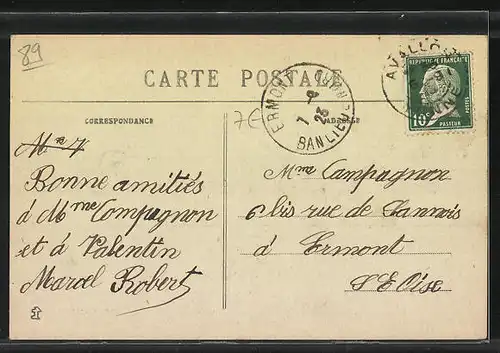 89
CARTE POSTALE
CORRESPONDANCE
ADRESSE
ERMONT
BANLIEUE
7 - 8
23
REPUBLIQUE FRANÇAISE
POSTES
10c
PASTEUR
Bonne amitiés
à Mme Compagnon
et à Valentin
Marcel Robert
Mme Campagnon
6 bis rue de Sannois
à Ermont
S E Oise